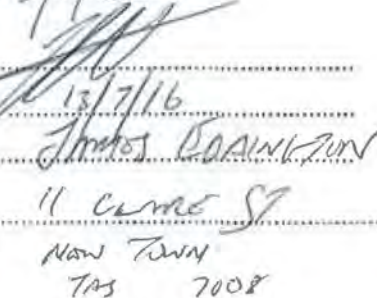 13/7/16
James Eddington
11 CLARE ST
NEW TOWN
TAS 7008